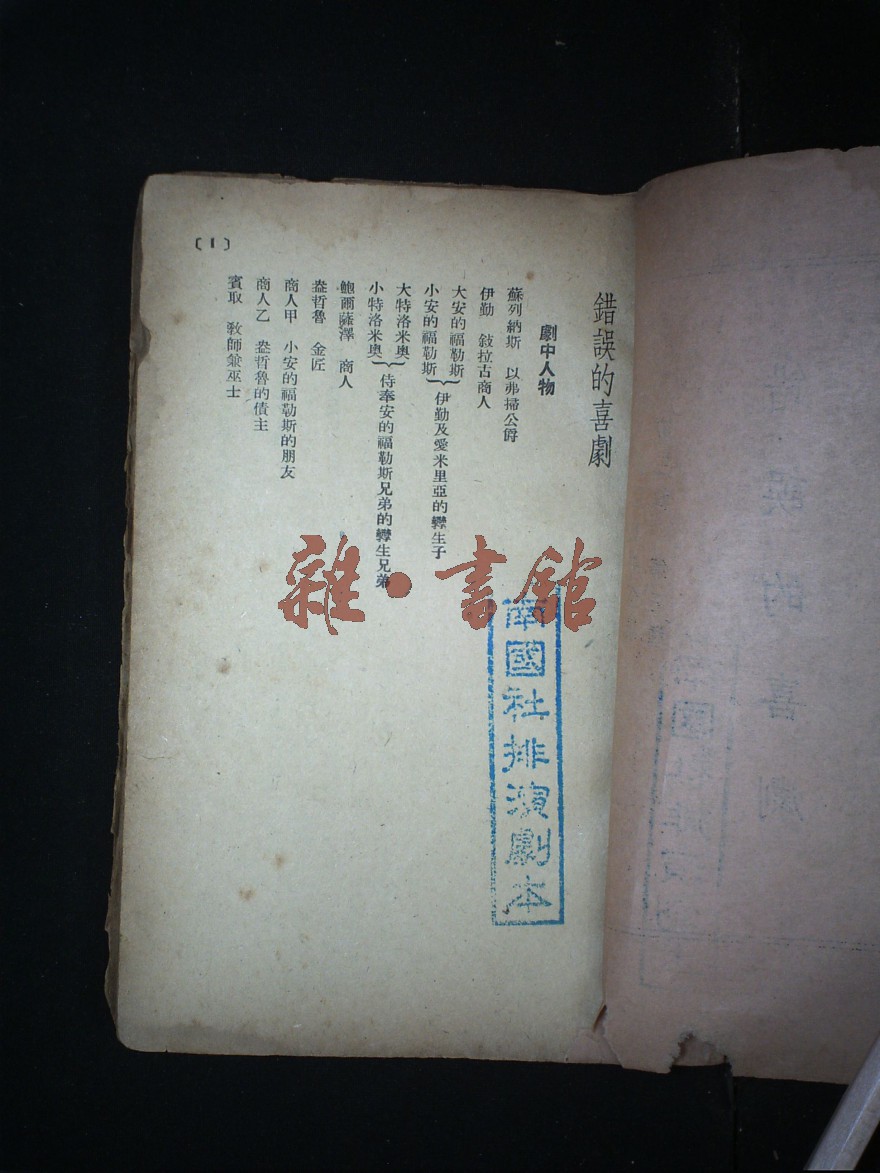 錯誤的喜劇
劇中人物
蘇列納斯 以弗掃公爵
伊勤 敍拉古商人
大安的福勒斯
小安的福勒斯 伊勤及愛米里亞的孿生子
大特洛米奧
小特洛米奧 侍奉安的福勒斯兄弟的孿生兄弟
鮑爾薩澤 商人
盎哲魯 金匠
商人甲 小安的福勒斯的朋友
商人乙 盎哲魯的債主
賓取 敎師兼巫士
〔1〕
南國社排演劇本
雜·書館